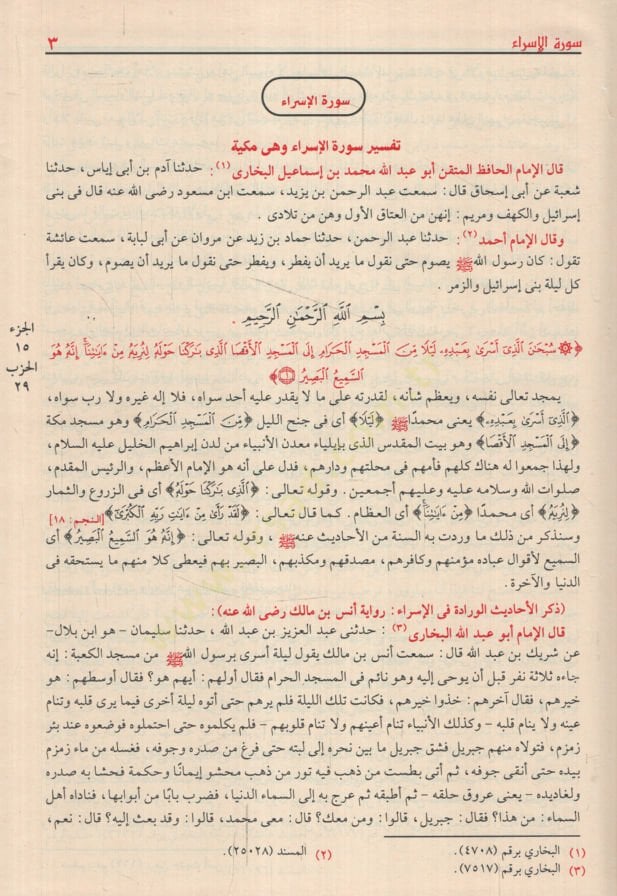 سورة الإسراء ٣
سورة الإسراء
تفسير سورة الإسراء وهى مكية
قال الإمام الحافظ المتقن أبو عبد الله محمد بن إسماعيل البخارى (١) : حدثنا آدم بن أبى إياس ، حدثنا
شعبة عن أبى إسحاق قال : سمعت عبد الرحمن بن يزيد، سمعت ابن مسعود رضى الله عنه قال فى بنى
إسرائيل والكهف ومريم : إنهن من العتاق الأول وهن من تلادى .
وقال الإمام أحمد (٢) : حدثنا عبد الرحمن، حدثنا حماد بن زيد عن مروان عن أبى لبابة، سمعت عائشة
تقول : كان رسول الله ﷺ يصوم حتى نقول ما يريد أن يفطر، ويفطر حتى نقول ما يريد أن يصوم، وكان يقرأ
كل ليلة بنى إسرائيل والزمر .
بِسْمِ اللَّهِ الرَّحْمَٰنِ الرَّحِيمِ
الجزء
١٥
الحزب
٢٩
﴿۞ سُبْحَٰنَ ٱلَّذِىٓ أَسْرَىٰ بِعَبْدِهِۦ لَيْلًا مِّنَ ٱلْمَسْجِدِ ٱلْحَرَامِ إِلَى ٱلْمَسْجِدِ ٱلْأَقْصَا ٱلَّذِى بَٰرَكْنَا حَوْلَهُۥ لِنُرِيَهُۥ مِنْ ءَايَٰتِنَآ إِنَّهُۥ هُوَ
ٱلسَّمِيعُ ٱلْبَصِيرُ ١﴾
يمجد تعالى نفسه، ويعظم شأنه، لقدرته على ما لا يقدر عليه أحد سواه، فلا إله غيره ولا رب سواه،
﴿ٱلَّذِىٓ أَسْرَىٰ بِعَبْدِهِۦ﴾ يعنى محمدًا ﷺ ﴿لَيْلًا﴾ أى فى جنح الليل ﴿مِّنَ ٱلْمَسْجِدِ ٱلْحَرَامِ﴾ وهو مسجد مكة
﴿إِلَى ٱلْمَسْجِدِ ٱلْأَقْصَا﴾ وهو بيت المقدس الذى بإيلياء معدن الأنبياء من لدن إبراهيم الخليل عليه السلام،
ولهذا جمعوا له هناك كلهم فأمهم فى محلتهم ودارهم، فدل على أنه هو الإمام الأعظم، والرئيس المقدم،
صلوات الله وسلامه عليه وعليهم أجمعين . وقوله تعالى : ﴿ٱلَّذِى بَٰرَكْنَا حَوْلَهُۥ﴾ أى فى الزروع والثمار
﴿لِنُرِيَهُۥ﴾ أى محمدًا ﴿مِنْ ءَايَٰتِنَآ﴾ أى العظام . كما قال تعالى : ﴿لَقَدْ رَأَىٰ مِنْ ءَايَٰتِ رَبِّهِ ٱلْكُبْرَىٰٓ﴾ [النجم: ١٨]
وسنذكر من ذلك ما وردت به السنة من الأحاديث عنه ﷺ ، وقوله تعالى : ﴿إِنَّهُۥ هُوَ ٱلسَّمِيعُ ٱلْبَصِيرُ﴾ أى
السميع لأقوال عباده مؤمنهم وكافرهم، مصدقهم ومكذبهم، البصير بهم فيعطى كلا منهم ما يستحقه فى
الدنيا والآخرة .
(ذكر الأحاديث الورادة فى الإسراء : رواية أنس بن مالك رضى الله عنه):
قال الإمام أبو عبد الله البخارى (٣) : حدثنى عبد العزيز بن عبد الله ، حدثنا سليمان – هو ابن بلال–
عن شريك بن عبد الله قال : سمعت أنس بن مالك يقول ليلة أسرى برسول الله ﷺ من مسجد الكعبة : إنه
جاءه ثلاثة نفر قبل أن يوحى إليه وهو نائم فى المسجد الحرام فقال أولهم : أيهم هو؟ فقال أوسطهم : هو
خيرهم، فقال آخرهم : خذوا خيرهم، فكانت تلك الليلة فلم يرهم حتى أتوه ليلة أخرى فيما يرى قلبه وتنام
عينه ولا ينام قلبه – وكذلك الأنبياء تنام أعينهم ولا تنام قلوبهم – فلم يكلموه حتى احتملوه فوضعوه عند بئر
زمزم، فتولاه منهم جبريل فشق جبريل ما بين نحره إلى لبته حتى فرغ من صدره وجوفه، فغسله من ماء زمزم
بيده حتى أنقى جوفه، ثم أتى بطست من ذهب فيه تور من ذهب محشو إيمانًا وحكمة فحشا به صدره
ولغاديده – يعنى عروق حلقه – ثم أطبقه ثم عرج به إلى السماء الدنيا، فضرب بابًا من أبوابها، فناداه أهل
السماء : من هذا؟ فقال : جبريل، قالوا : ومن معك؟ قال : معى محمد، قالوا : وقد بعث إليه؟ قال : نعم،
(١) البخاري برقم (٤٧٠٨). (٢) المسند (٢٥٠٢٨).
(٣) البخاري برقم (٧٥١٧).